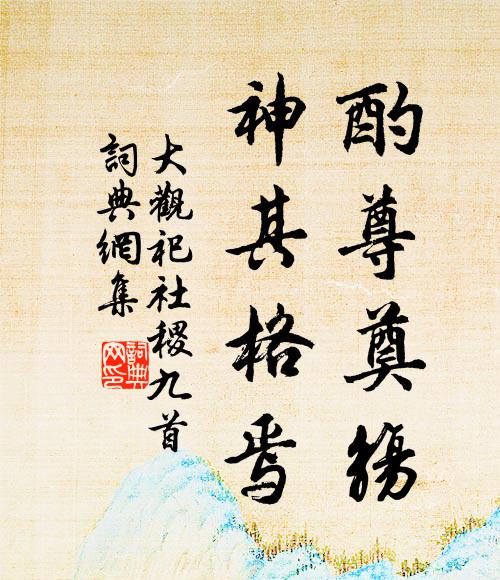 酌尊奠觴
神其格焉
大觀祀社稷九首
詞典網集
詞典
网印